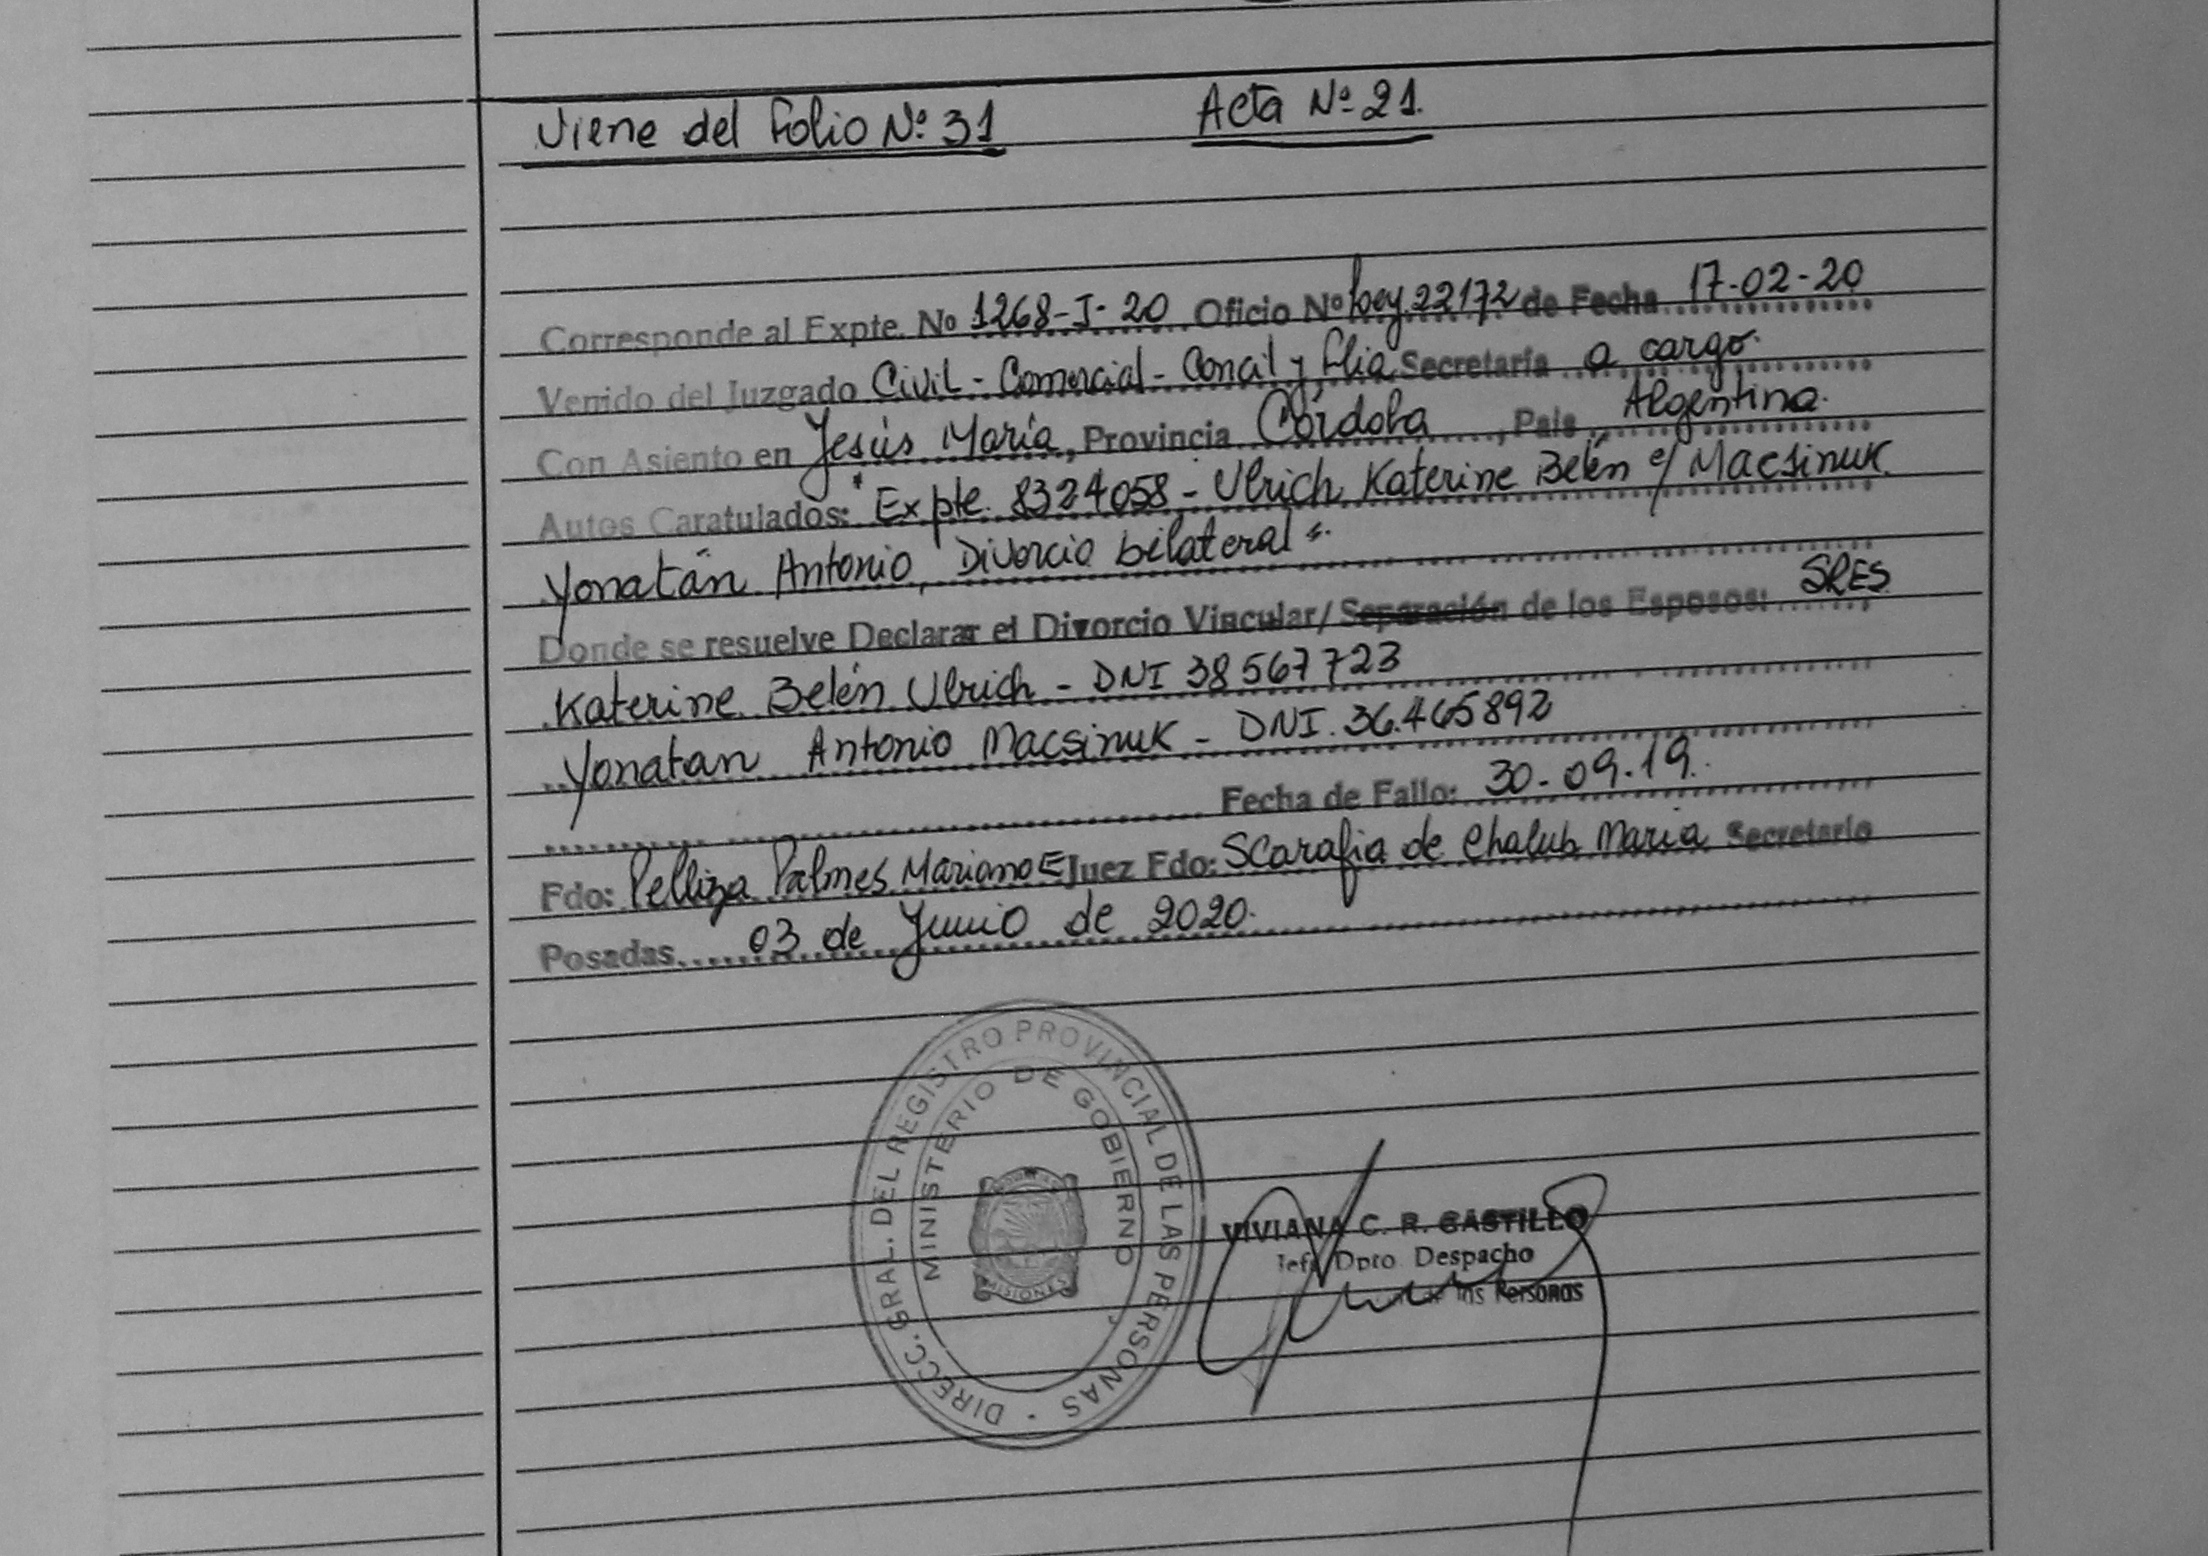 Viene del Folio Nº 31 Acta Nº 21.
Corresponde al Expte. No 1268-I-20 Oficio Nº Ley 22172 de Fecha 17-02-20
Venido del Juzgado Civil - Comercial - Concil y Flia Secretaría a cargo.
Con Asiento en Jesús María, Provincia Córdoba, País Argentina.
Autos Caratulados: "Expte. 8324058 - Ulrich Katerine Belén c/ Macsinuk
Yonatán Antonio, Divorcio bilateral".
Donde se resuelve Declarar el Divorcio Vincular/ Separación de los Esposos: SRES.
Katerine Belén Ulrich - DNI 38567723
Yonatan Antonio Macsinuk - DNI. 36.465892
Fecha de Fallo: 30-09.19.
Fdo: Pelliza Palmes Mariano E Juez Fdo: Scarafia de Chalub Maria Secretario
Posadas 03 de Junio de 2020.
DIRECC. GRAL. DEL REGISTRO PROVINCIAL DE LAS PERSONAS
MINISTERIO DE GOBIERNO
MISIONES
VIVIANA C. R. CASTILLO
Jefe Dpto. Despacho
las Personas